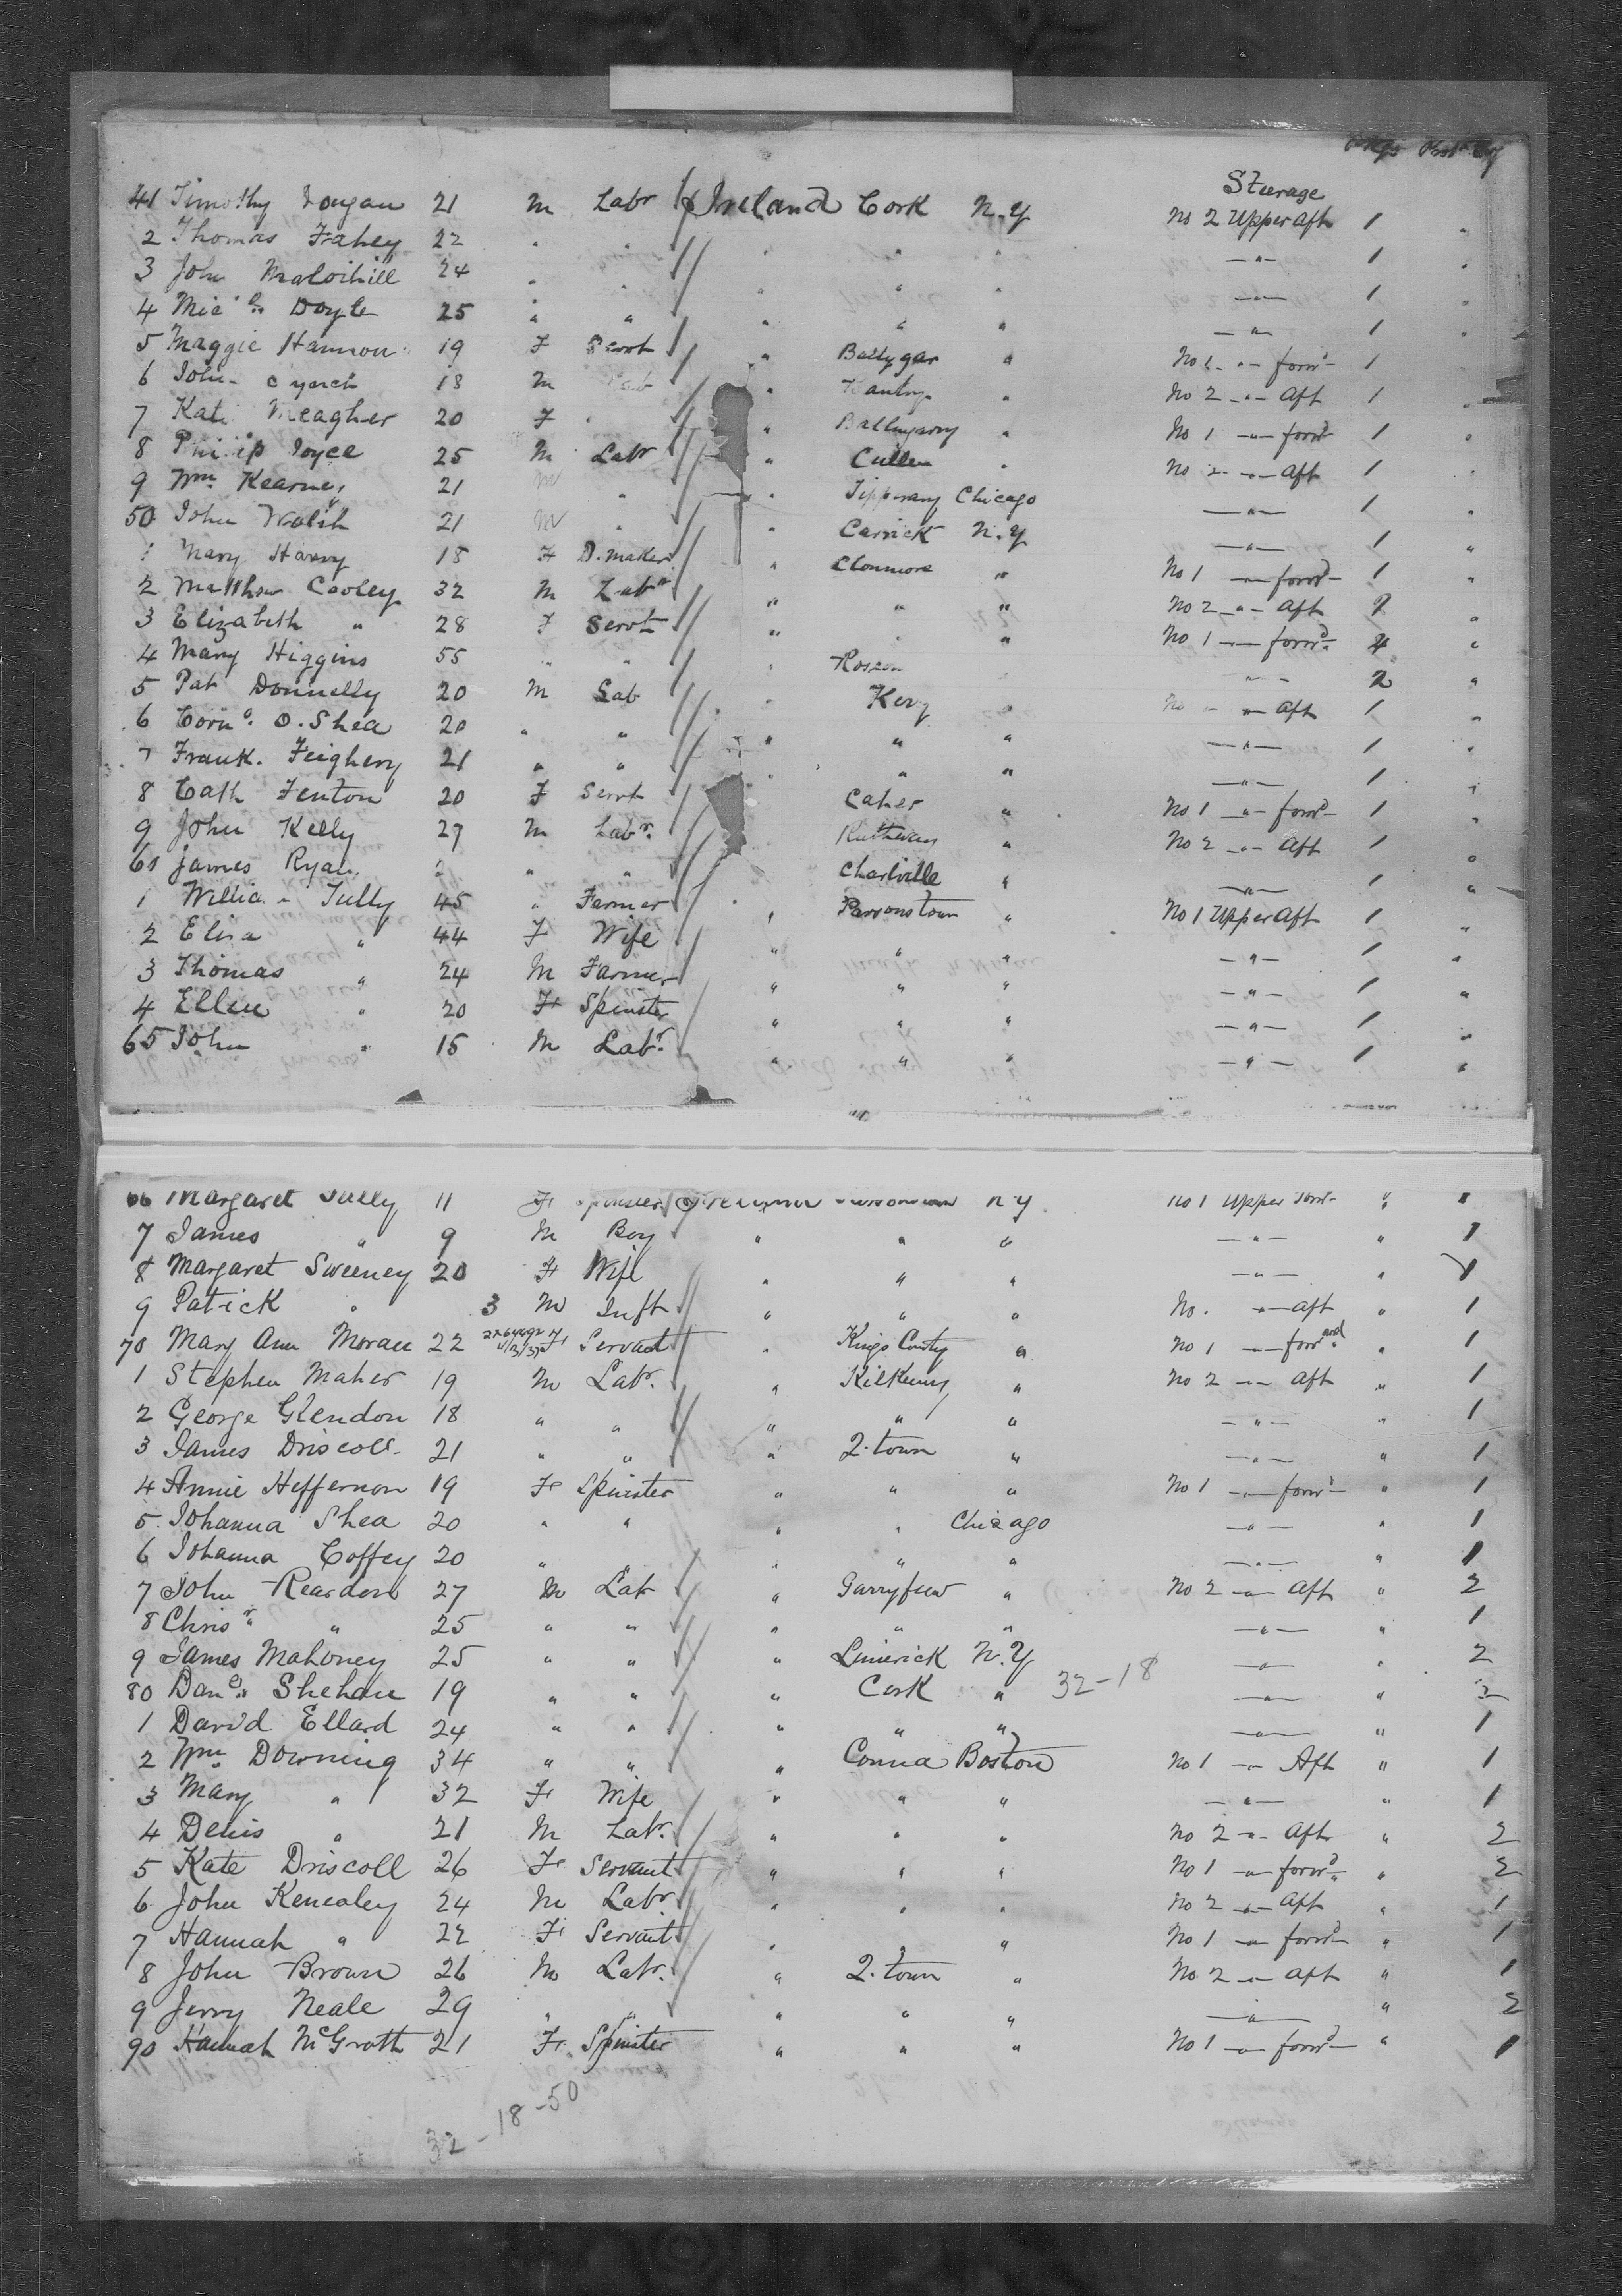 Steerage
41 Timothy 21 m Labr Ireland Cork N.Y No 2 Upper Aft 1 "
2 Thomas Fahey 22 " " " " " —"— 1 "
3 John 24 " " " " " —"— 1 "
4 Mich. Doyle 25 " " " " " —"— 1 "
5 Maggie Hannon 19 F Servt " Ballygar " — " — forwd 1
6 John 18 m " " No 2 —"— Aft 1
7 Kate Meagher 20 F " " Ballingarry " No 1 —"— forwd 1 "
8 Philip Joyce 25 m Labr " Cullen " No 2 —"— Aft 1 "
9 Wm. Kearney 21 m " " Tipperary Chicago —"— 1 "
50 John Walsh 21 m " " Carrick N.Y —"— 1 "
1 Mary 18 F D. Maker " Clonmore " No 1 —"— forwd 1 "
2 Matthew Cooley 32 m Labr " " " No 2 —"— Aft "
3 Elizabeth " 28 F Servt " " " No 1 —"— forwd "
4 Mary Higgins 55 " " " " — 2 "
5 Pat Donnelly 20 m Lab " Kerry " —"— Aft 1 "
6 Corns. O. Shea 20 " " " " " —"— 1 "
7 Frank. Feighery 21 " " " " " —"— 1 "
8 Cath Fenton 20 F Servt Caher " No 1 —"— forwd 1 "
9 John Kelly 27 m Labr. " No 2 —"— Aft 1 "
60 James Ryan " " Charlville " —"— 1 "
1 Tully 45 " Farmer " Parsonstown " No 1 Upper Aft 1 "
2 Eliza " 44 F Wife " " " —"— 1 "
3 Thomas " 24 m Farmer " " " —"— 1 "
4 Ellen " 20 F Spinster " " " —"— 1 "
65 John " 15 m Labr. " " " —"— 1 "
66 Margaret Tully 11 F Spinster Ireland Parsonstown N.Y. No 1 Upper forwd " 1
7 James " 9 m Boy " " " —"— " 1
8 Margaret Sweeney 20 F Wife " " " —"— " 1
9 Patrick " 3 m Inft " " " No. —"— aft " 1
70 Mary Ann Moran 22 F Servant " Kings County " No 1 —"— forward " 1
1 Stephen Maher 19 m Labr. " Kilkenny " No 2 —"— aft " 1
2 George Glendon 18 " " " " " —"— " 1
3 James Driscoll 21 " " " Q. town " —"— " 1
4 Annie Heffernon 19 F Spinster " " " No 1 —"— forwd " 1
5 Johanna Shea 20 " " " " Chicago —"— " 1
6 Johanna Coffey 20 " " " " " —"— " 1
7 John Reardon 27 m Labr " " No 2 —"— Aft " 2
8 Chrisr " 25 " " " " " —"— " 1
9 James Mahoney 25 " " " Limerick N.Y —"— " 2
80 Danl. Shehan 19 " " " Cork " 32-18 —"— " 2
1 David Ellard 24 " " " " " —"— " 1
2 Wm Downing 34 " " " Conna Boston No 1 —"— Aft " 1
3 Mary " 32 F Wife " " " —"— " 1
4 Denis " 21 m Labr. " " " No 2 —"— Aft " 2
5 Kate Driscoll 26 F Servant " " " No 1 —"— forwd " 2
6 John Kenealey 24 m Labr " " " No 2 —"— Aft " 1
7 Hannah " 22 F Servant " " " No 1 —"— forwd " 1
8 John Brown 26 m Labr. " Q. town " No 2 —"— aft " 1
9 Jerry Neale 29 " " " " " —"— " 2
90 Hannah McGrath 21 F. Spinster " " " No 1 —"— forwd " 1
32-18-50